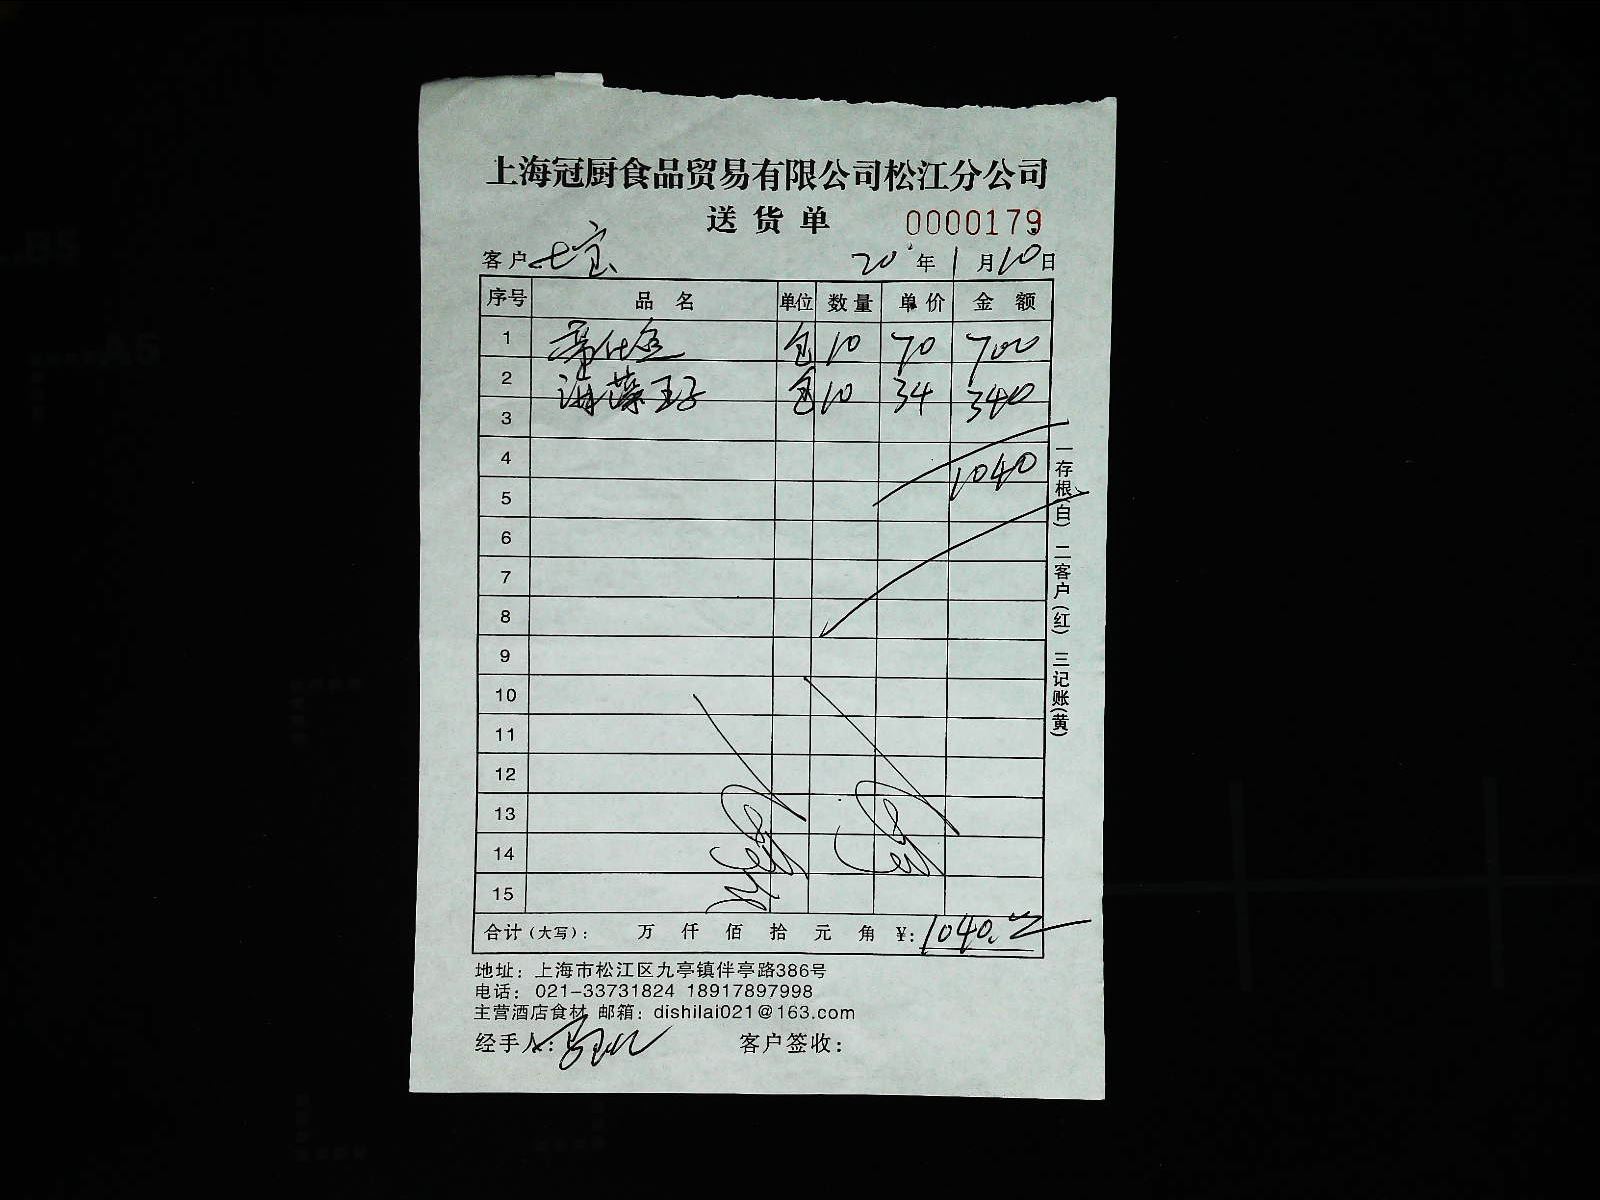 上海冠厨食品贸易有限公司松江分公司
送货单 0000179
客户 七宝 20 年 1 月 10 日
序号 品名 单位 数量 单价 金额
1 包 10 70 700
2 海藻 包 10 34 340
3
4 1040
5
6
7
8
9
10
11
12
13
14
15
合计(大写): 万 仟 佰 拾 元 角 ¥: 1040.
一存根(白) 二客户(红) 三记账(黄)
地址: 上海市松江区九亭镇伴亭路386号
电话: 021-33731824 18917897998
主营酒店食材 邮箱: dishilai021@163.com
经手人: 客户签收: